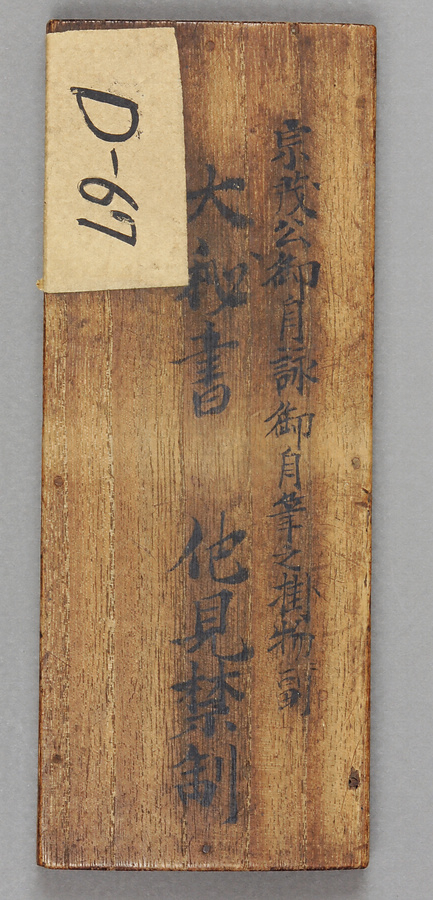 宗茂公御自詠御自筆之掛物副
大秘書 他見禁制
D-67